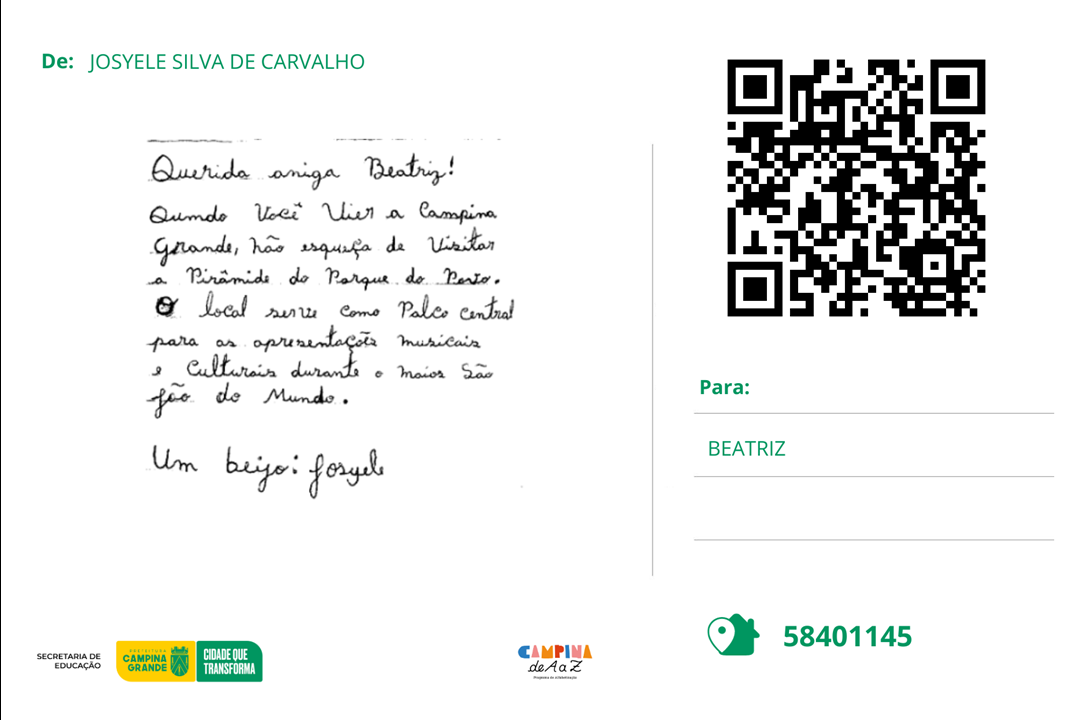 De: JOSYELE SILVA DE CARVALHO
Querida amiga Beatriz!
Qumdo você vier a Campina
Grande, não esqueça de visitar
a Pirâmide do Parque do Povo.
O local serve como Palco central
para as apresentações musicais
e culturais durante o maior São
João do Mundo.
Um beijo: Josyele
Para:
BEATRIZ
58401145
SECRETARIA DE
EDUCAÇÃO
PREFEITURA
CAMPINA
GRANDE
CIDADE QUE
TRANSFORMA
CAMPINA
de A a Z
Programa de Alfabetização